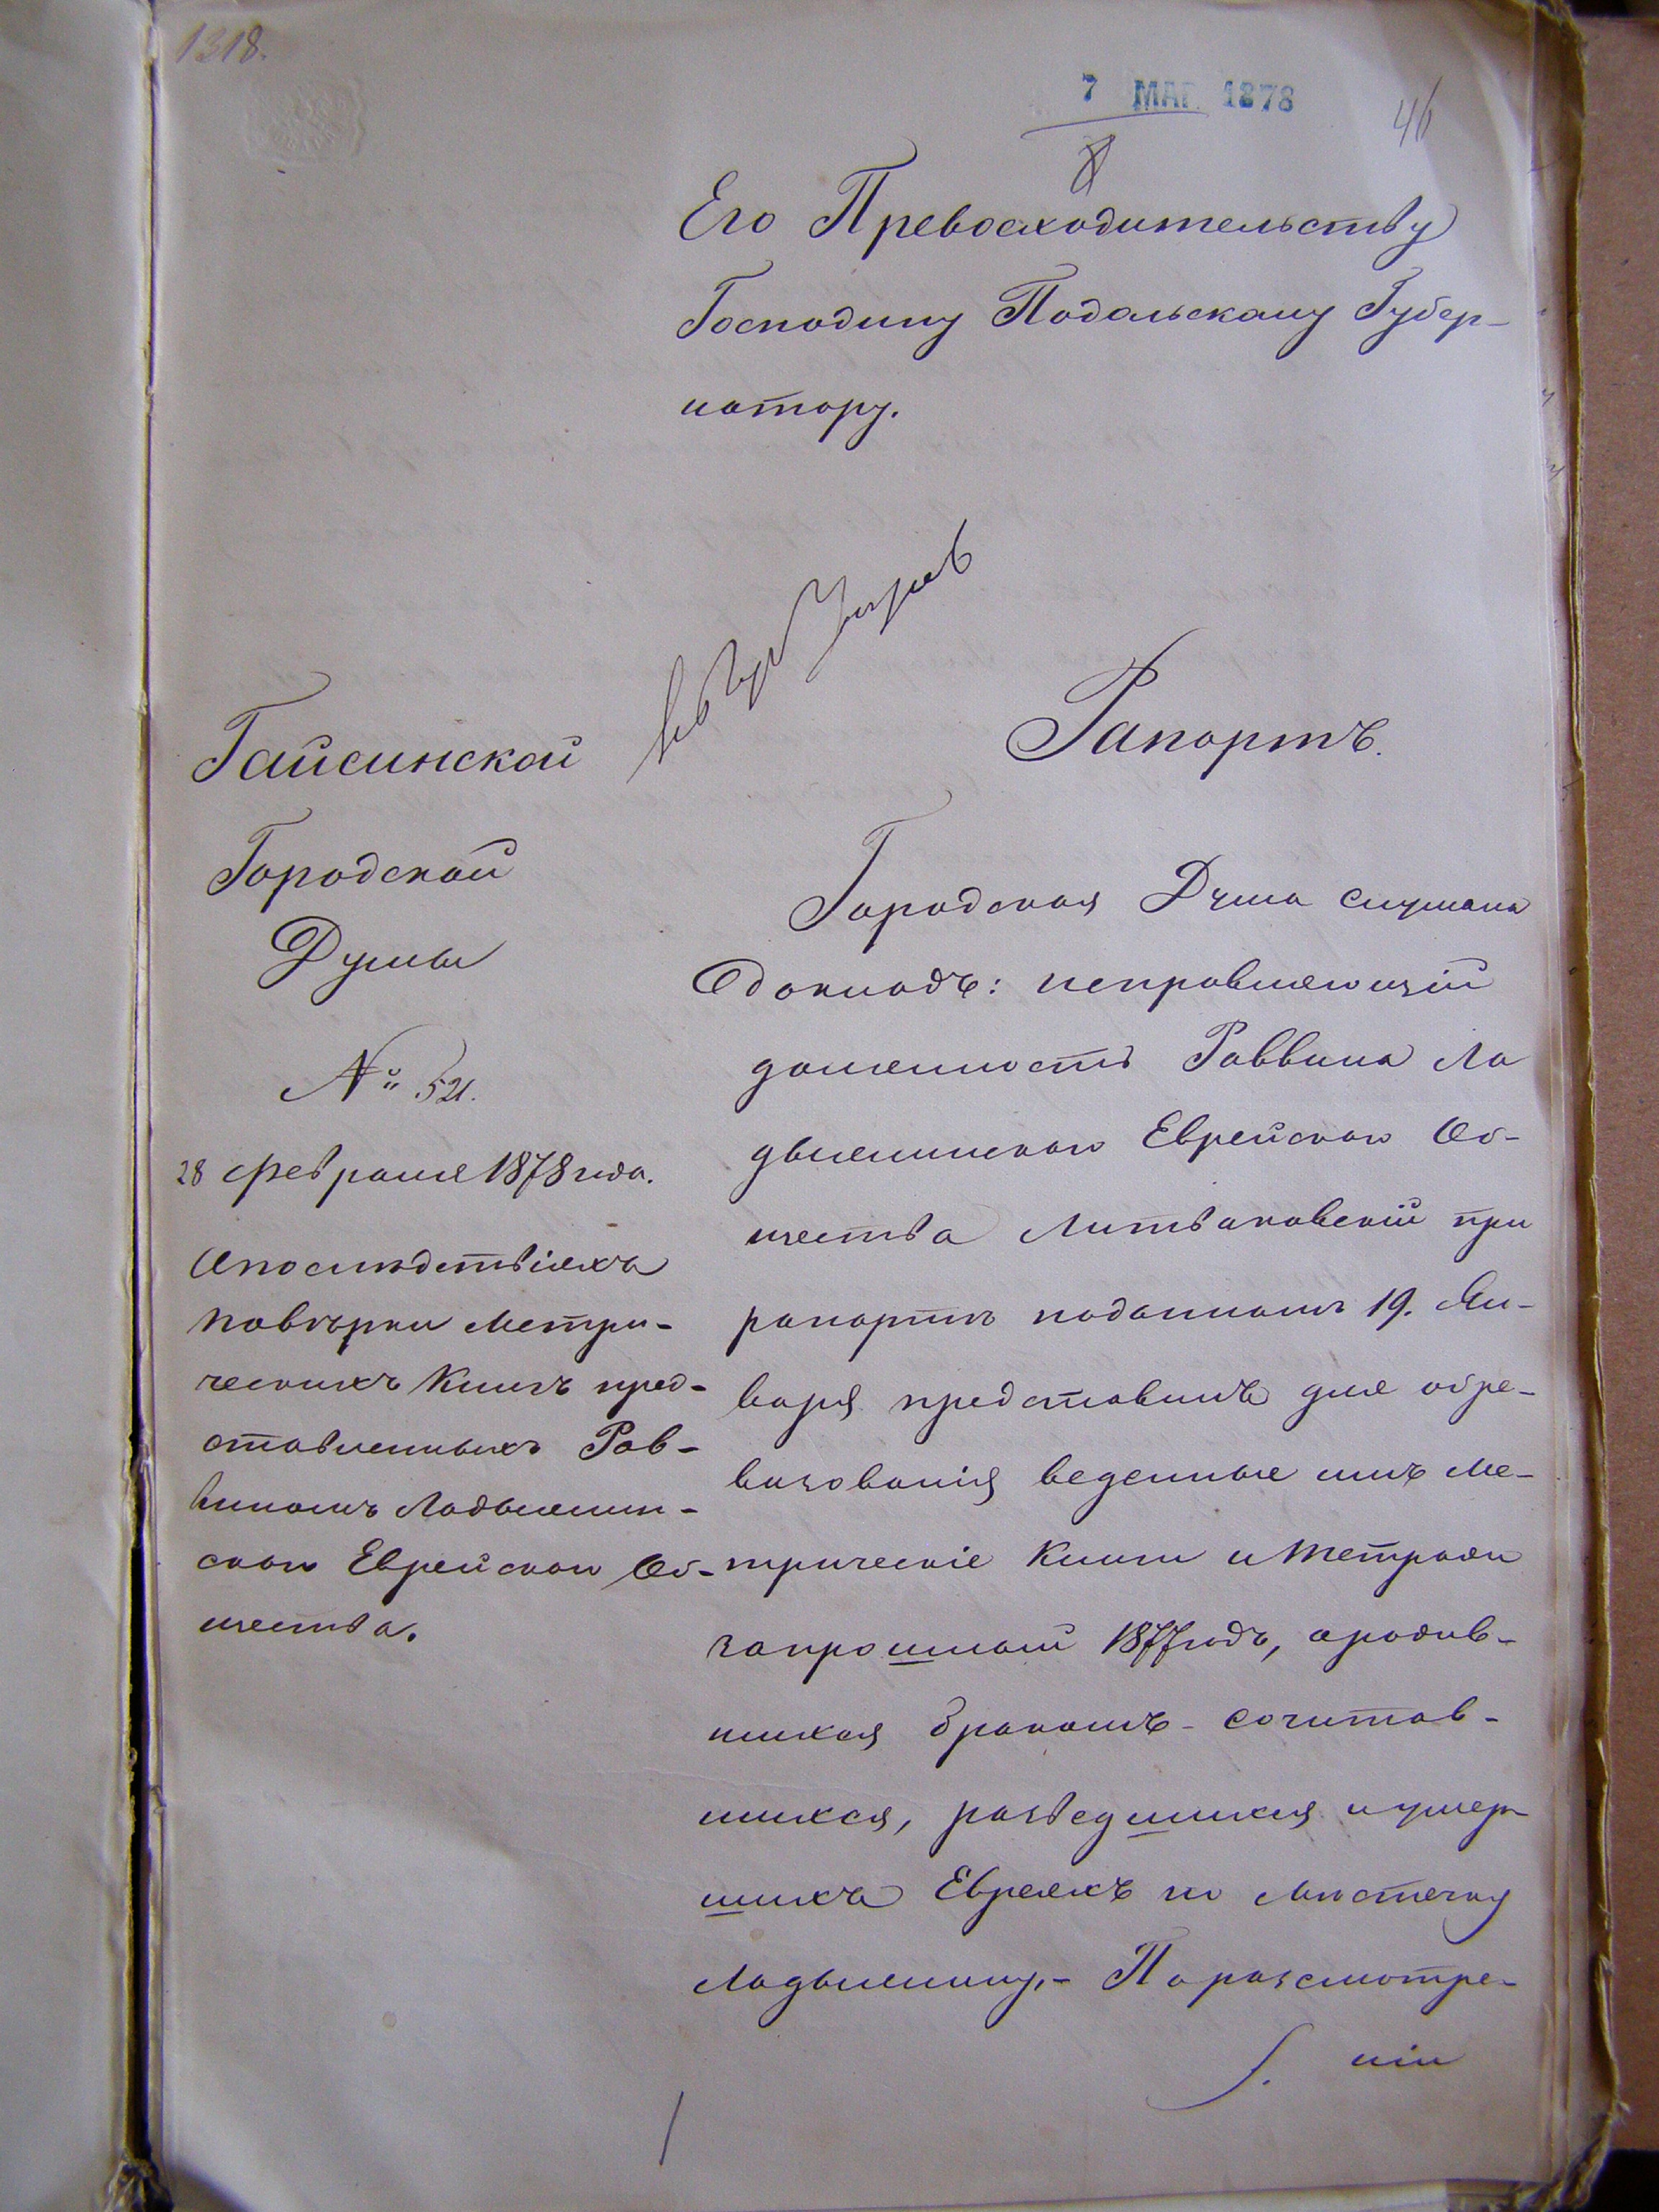 1318.
7 МАР. 1878
46
Его Превосходительству
Господину Подольскому Губер-
натору.
Гайсинской
Городской
Думы
№ 521.
28 февраля 1878 года.
О последствіяхъ
повѣрки Метри-
ческихъ Книгъ пред-
ставленныхъ Рав-
виномъ Ладыжин-
скаго Еврейскаго Об-
щества.
Рапортъ.
Городская Дума слушала
докладъ: исправляющій
должность Раввина Ла
дыжинскаго Еврейскаго Об-
щества Литваковскій при
рапортѣ поданномъ 19. Ян-
варя представилъ для обре-
визованія веденные имъ Ме-
трическіе Книги и тетради
за прошлый 1877 годъ, о родив-
шихся бракомъ-сочетав-
шихся, разведшихся и умер-
шихъ Евреяхъ по мѣстечку
Ладыжину,- По разсмотре-
ніи